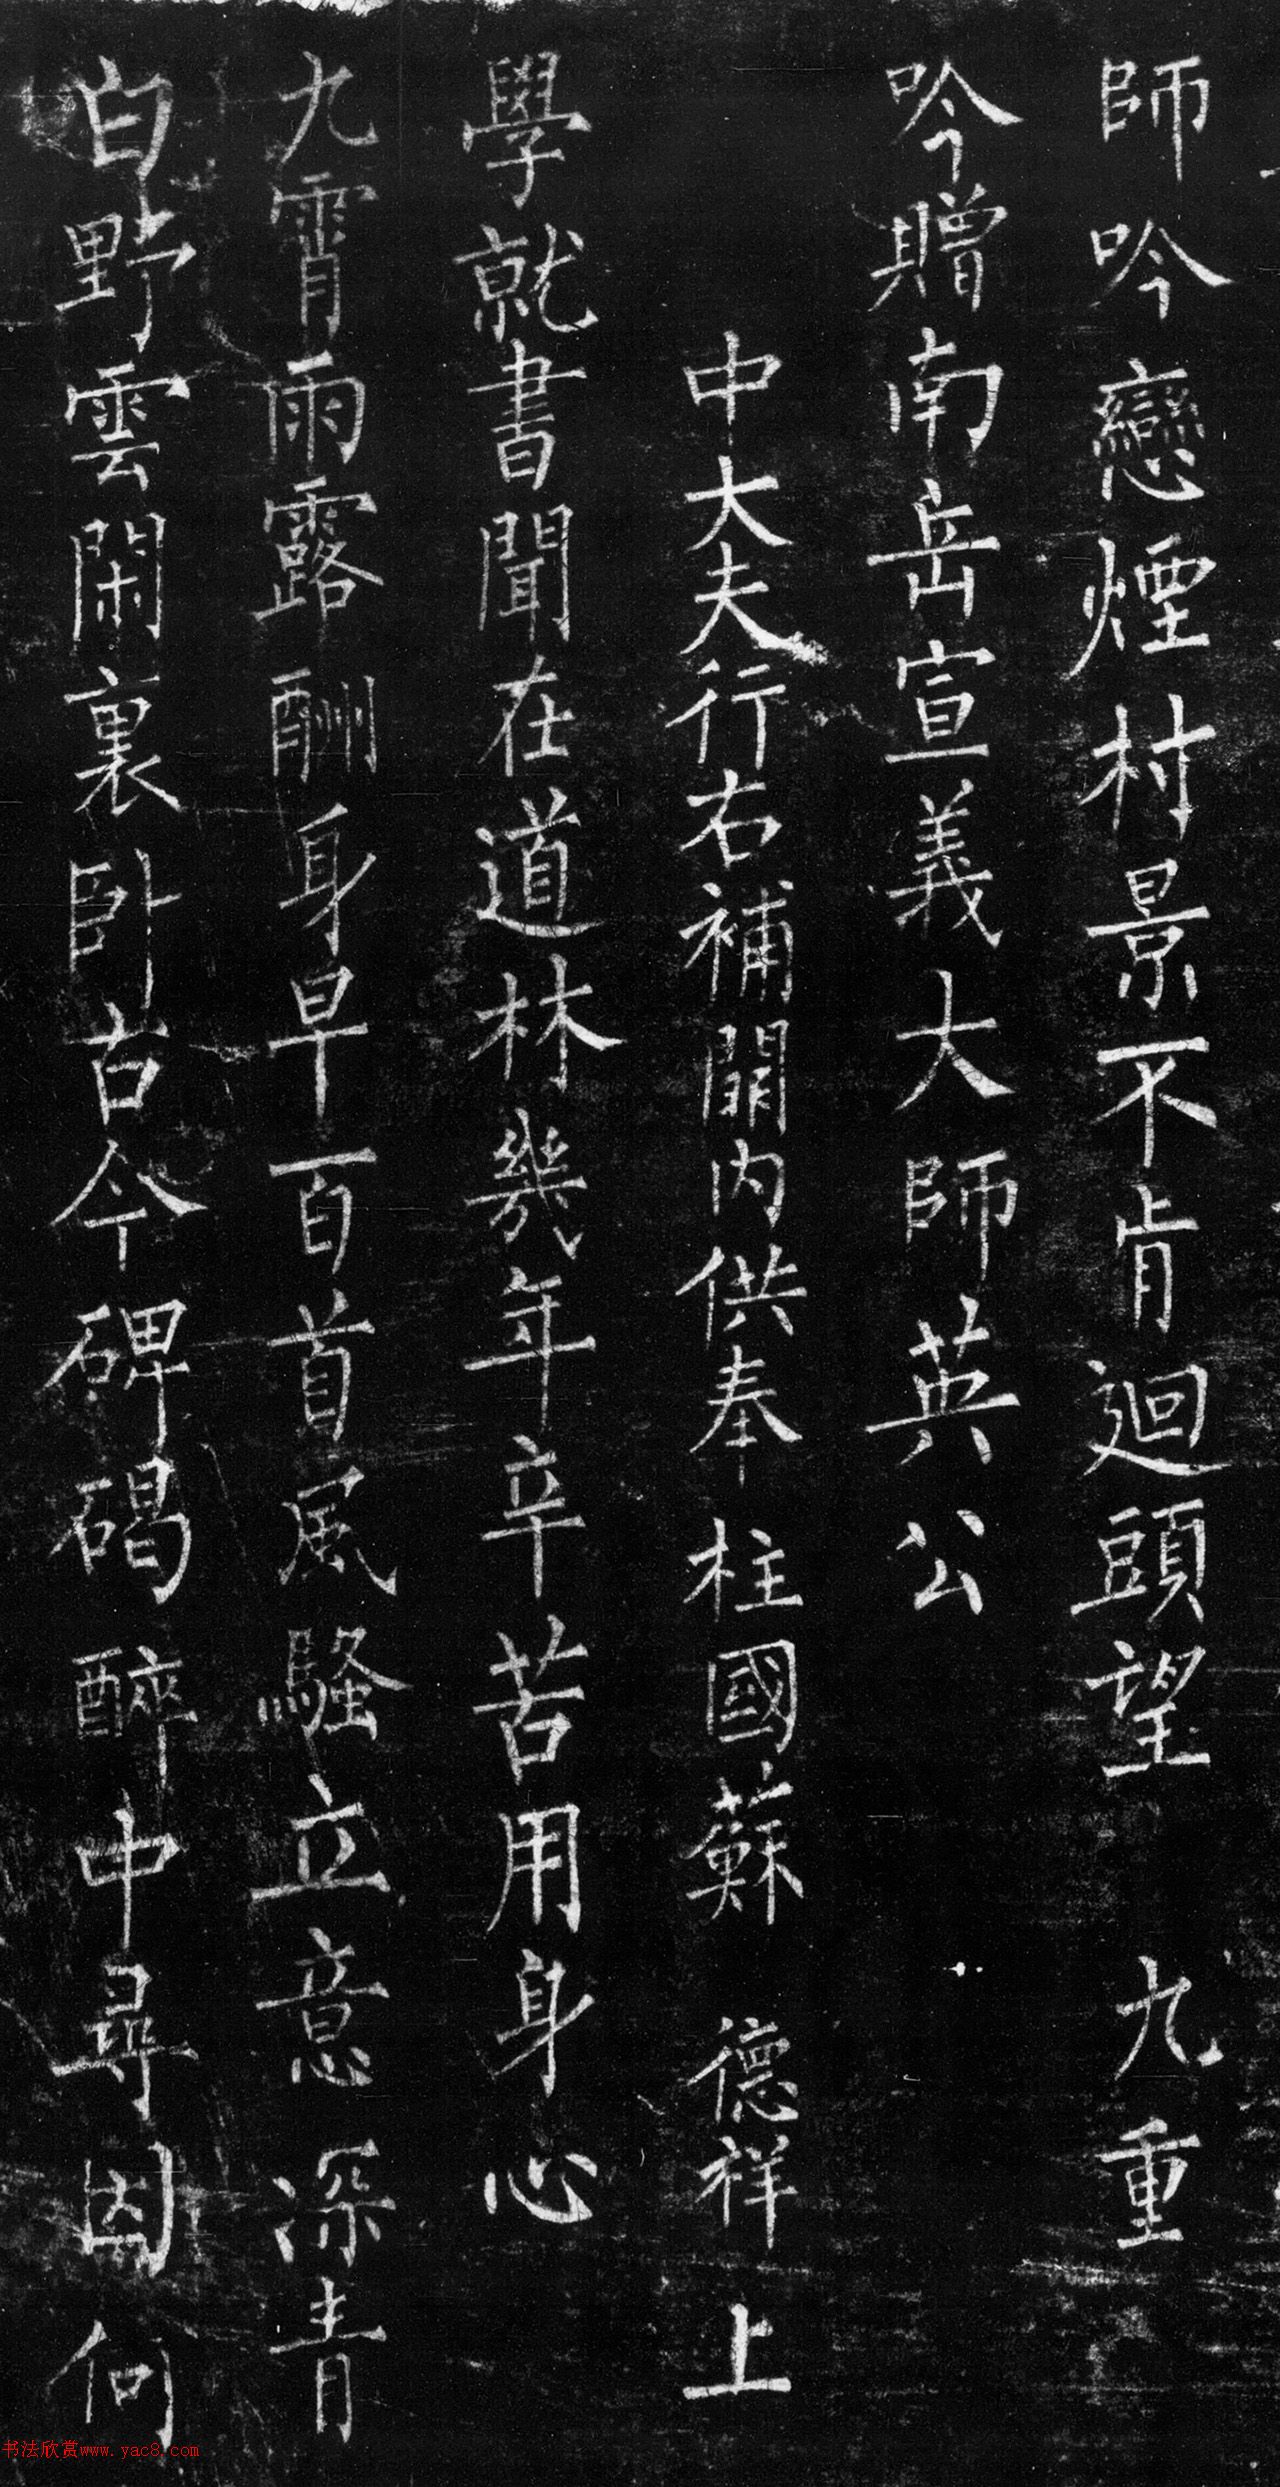 師吟戀煙村景不肯迴頭望九重
吟贈南岳宣義大師英公
中大夫行右補闕內供奉柱國蘇德祥上
學就書聞在道林幾年辛苦用身心
九霄雨露酬身早百首風騷立意深青
白野雲閑裏臥古今碑碣醉中尋因何
书法欣赏www.yac8.com